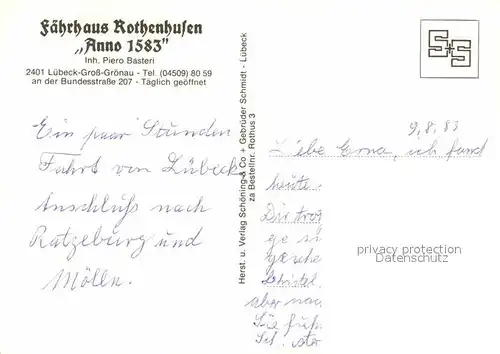 Fährhaus Rothenhusen
„Anno 1583"
Inh. Piero Basteri
2401 Lübeck-Groß-Grönau - Tel. (04509) 80 59
an der Bundesstraße 207 - Täglich geöffnet
Ein paar Stunden
Fahrt von Lübeck
Anschluß nach
Ratzeburg und
Mölln.
Herst. u. Verlag Schöning & Co + Gebrüder Schmidt - Lübeck
za Bestellnr. Rothus 3
S+S
9.8.83
Liebe Erna, ich fand
heute
Dir trotz
ge
gesche
Christel
aber nac
Sie fuh
Sch ster
privacy protection
Datenschutz